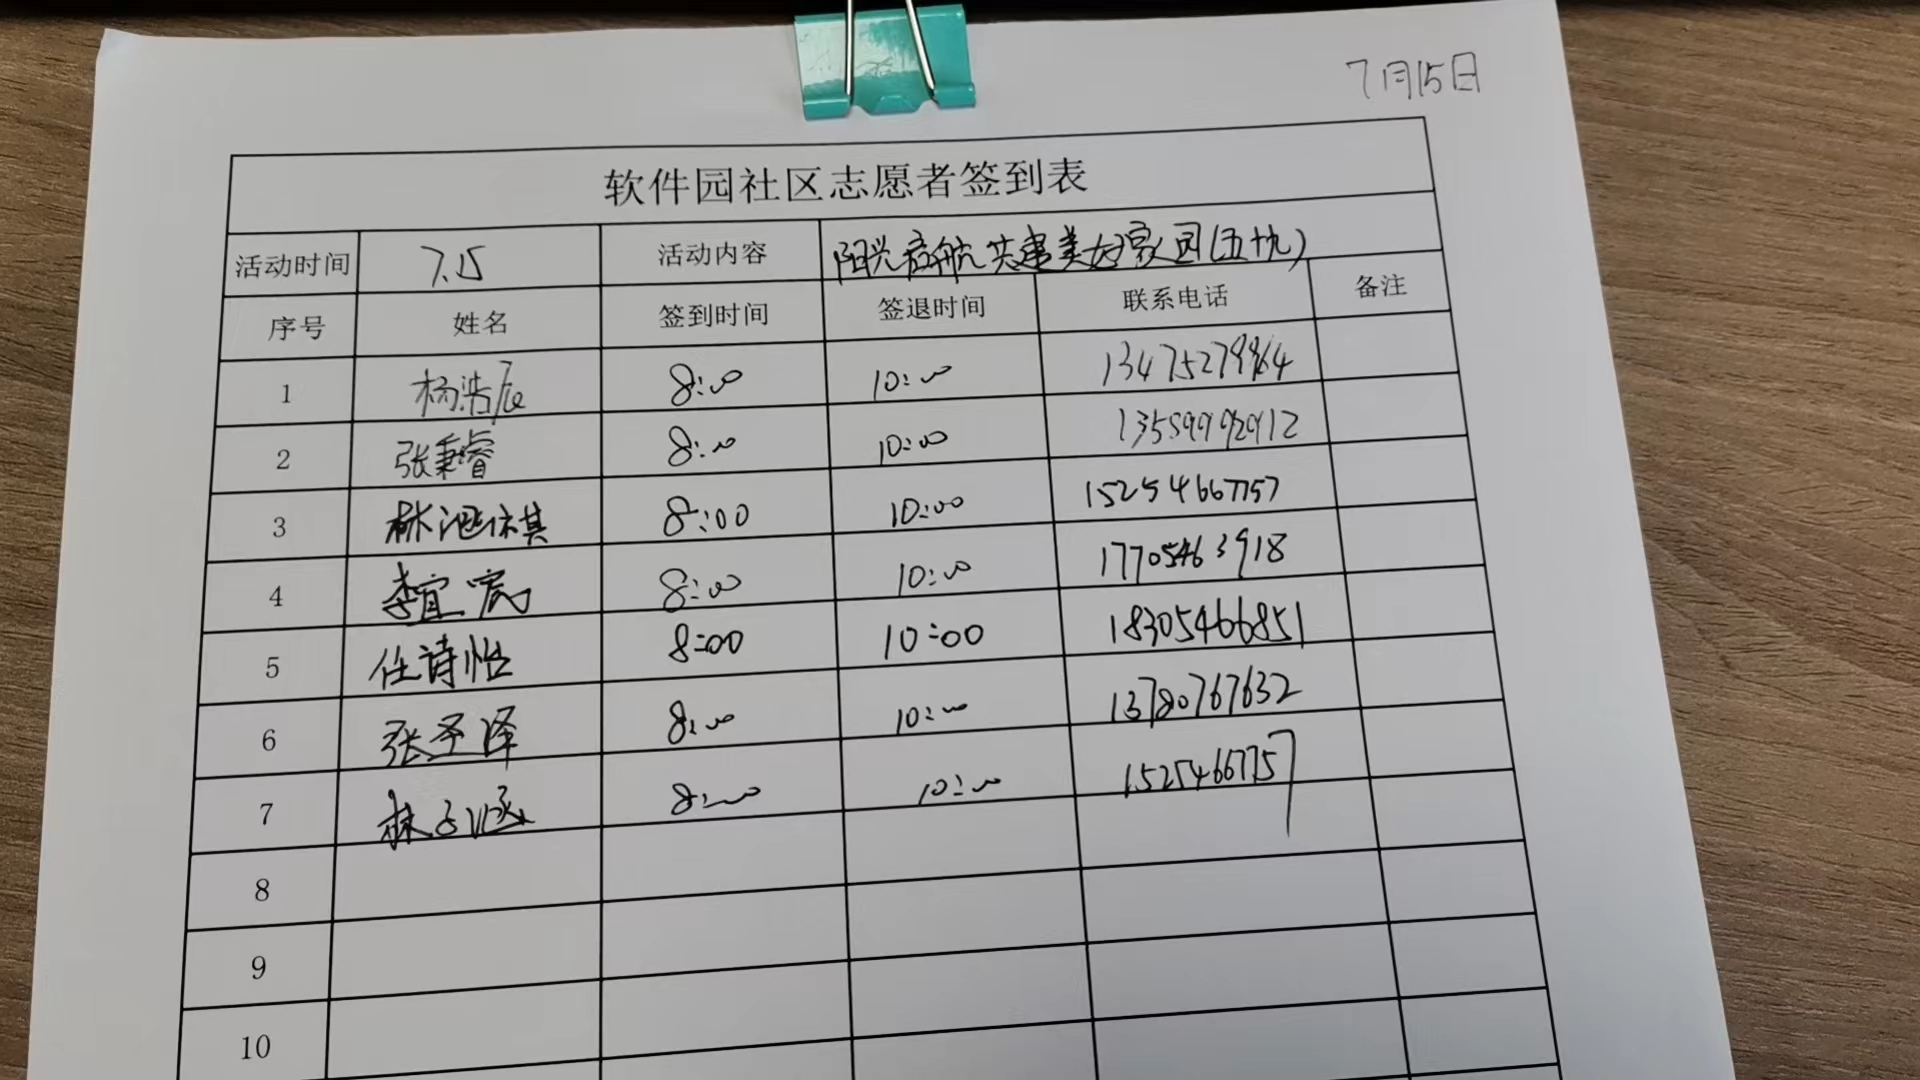 7月15日
软件园社区志愿者签到表
活动时间 7.15 活动内容 阳光启航共建美好家园(五十九)
序号 姓名 签到时间 签退时间 联系电话 备注
1 杨浩辰 8:00 10:00
2 张秉睿 8:00 10:00
3 林 8:00 10:00 15254667757
4 李宜宸 8:00 10:00 17705463918
5 任诗怡 8:00 10:00 18305466851
6 张予泽 8:00 10:00 13780767632
7 林子涵 8:00 10:00 15254667757
8
9
10